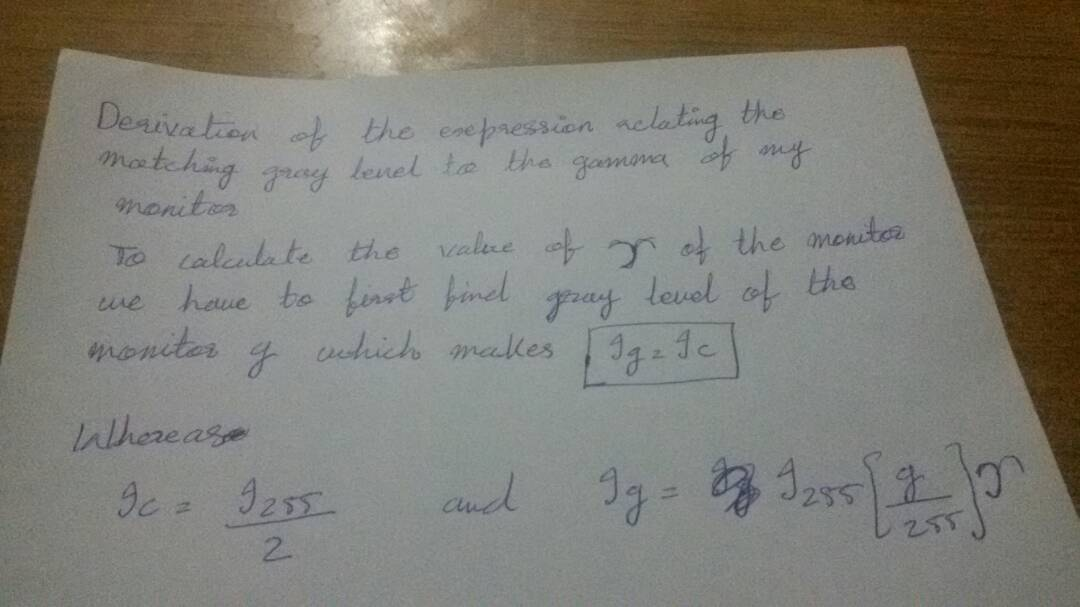 Derivation of the expression relating the
matching gray level to the gamma of my
monitor
To calculate the value of γ of the monitor
we have to first find gray level of the
monitor g which makes Ig = Ic
Whereas
Ic = I255/2 and Ig = I255 [g/255]γ